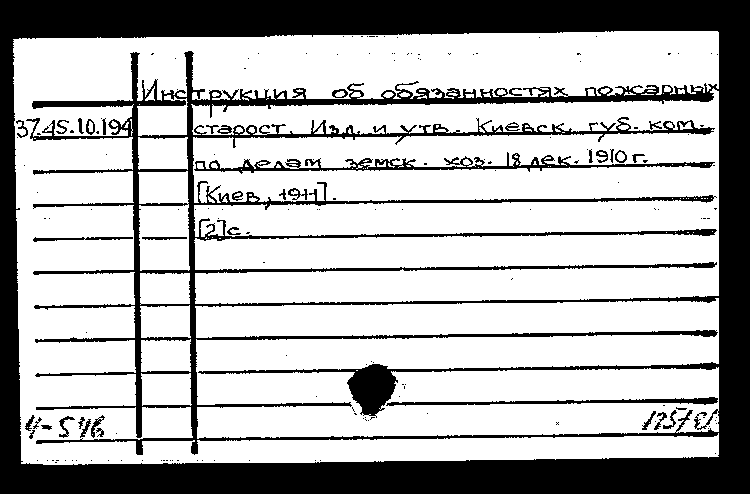 Инструкция об обязанностях пожарных
37.45.10.194 старост. Изд. и утв. Киевск. губ. ком.
по делам земск. хоз. 18 дек. 1910 г.
[Киев, 1911].
[2]с.
4-546